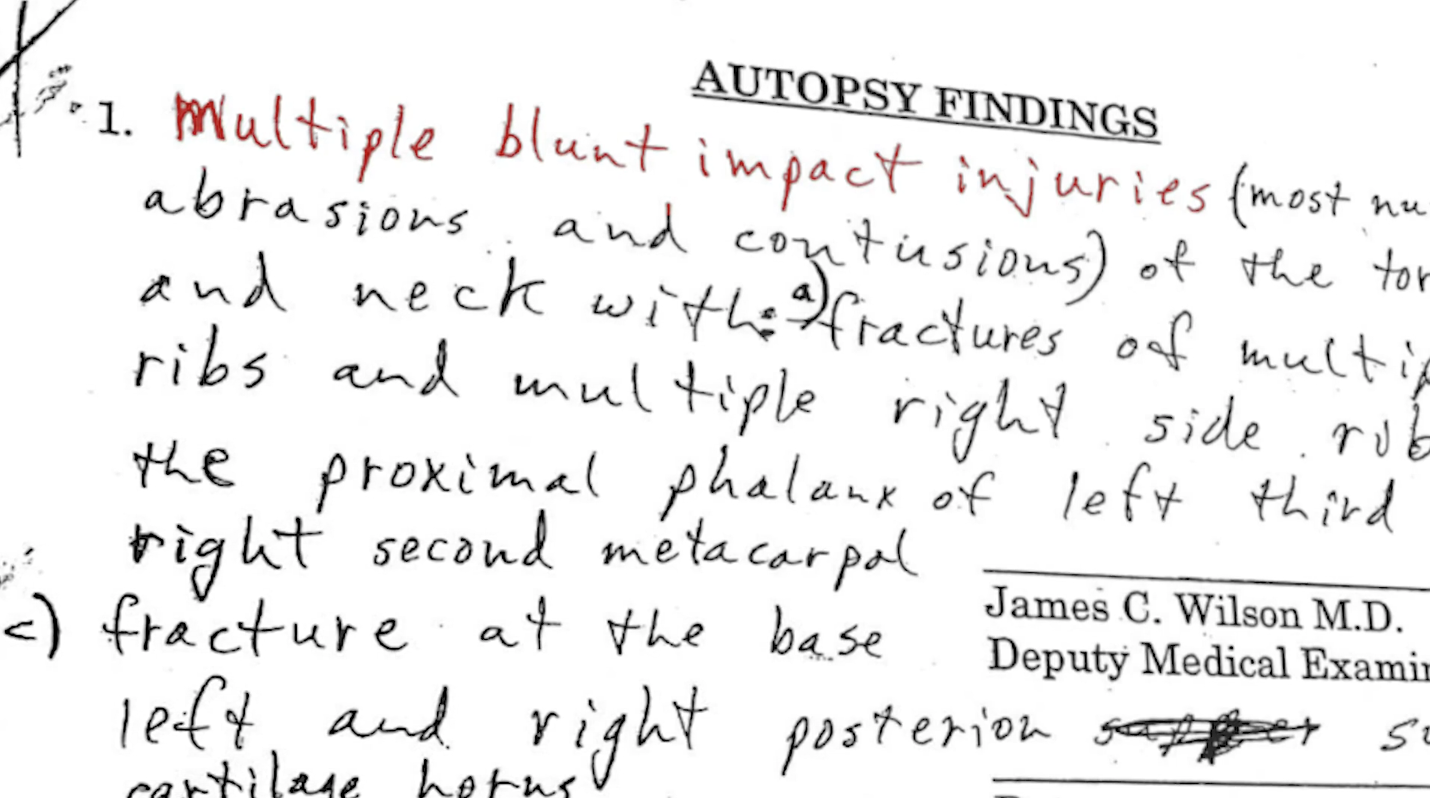 AUTOPSY FINDINGS
1. Multiple blunt impact injuries (most nu
abrasions and contusions) of the tor
and neck with: a) fractures of multip
ribs and multiple right side rib
the proximal phalanx of left third
right second metacarpal
James C. Wilson M.D.
Deputy Medical Examin
c) fracture at the base
left and right posterior su
cartilage horns